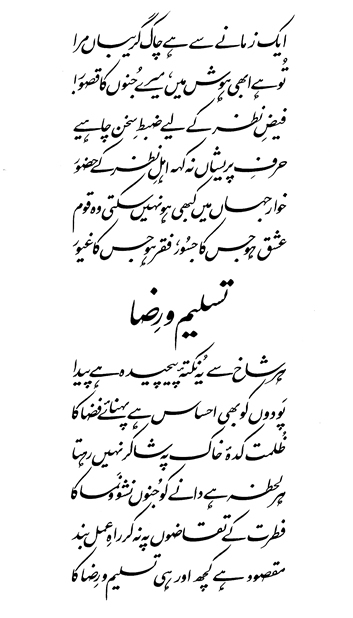 ایک زمانے سے ہے چاک گریباں مرا
تُو ہے ابھی ہوش میں، میرے جُنوں کا قصور!
فیضِ نظر کے لیے ضبطِ سخن چاہیے
حرفِ پریشاں نہ کہہ اہلِ نظر کے حضور
خوار جہاں میں کبھی ہو نہیں سکتی وہ قوم
عشق ہو جس کا جسُور، فقر ہو جس کا غیور
تسلیم و رِضا
ہر شاخ سے یہ نکتۂ پیچیدہ ہے پیدا
پَودوں کو بھی احساس ہے پہنائے فضا کا
ظُلمت کدۂ خاک پہ شاکر نہیں رہتا
ہر لحظہ ہے دانے کو جُنوں نشوونَما کا
فطرت کے تقاضوں پہ نہ کر راہِ عمل بند
مقصود ہے کچھ اور ہی تسلیم و رِضا کا